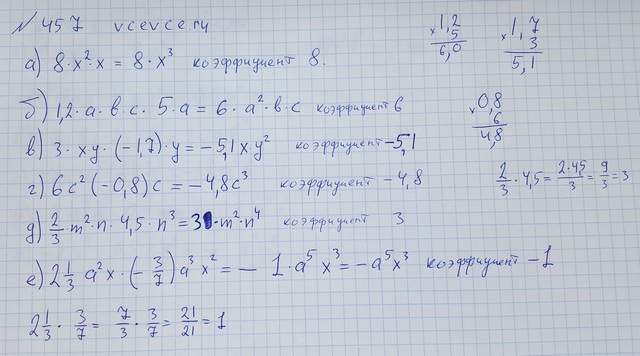 № 457 vcevce.ru
1,2
× 5
6,0
1,7
× 3
5,1
а) 8·x²·x = 8·x³ коэффициент 8.
б) 1,2·a·b·c·5·a = 6·a²·b·c коэффициент 6
0,8
× 6
4,8
в) 3·xy·(-1,7)·y = -5,1xy² коэффициент -5,1
г) 6c²(-0,8)c = -4,8c³ коэффициент -4,8
2/3 · 4,5 = 2·45/3 = 9/3 = 3
д) 2/3·m²·n·4,5·n³ = 3·m²·n⁴ коэффициент 3
е) 2 1/3 a²x·(-3/7)a³x² = - 1·a⁵x³ = -a⁵x³ коэффициент -1
2 1/3 · 3/7 = 7/3 · 3/7 = 21/21 = 1